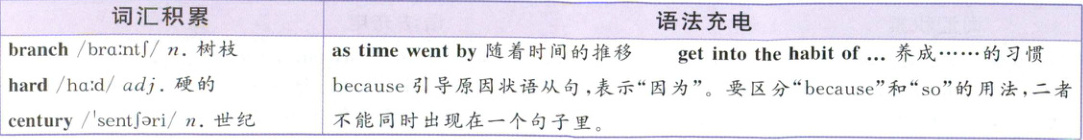 词汇积累
branch /brɑ:ntʃ/ n. 树枝
hard /hɑ:d/ adj. 硬的
century /ˈsentʃəri/ n. 世纪
语法充电
as time went by 随着时间的推移 get into the habit of ... 养成……的习惯
because 引导原因状语从句,表示“因为”。要区分“because”和“so”的用法,二者
不能同时出现在一个句子里。